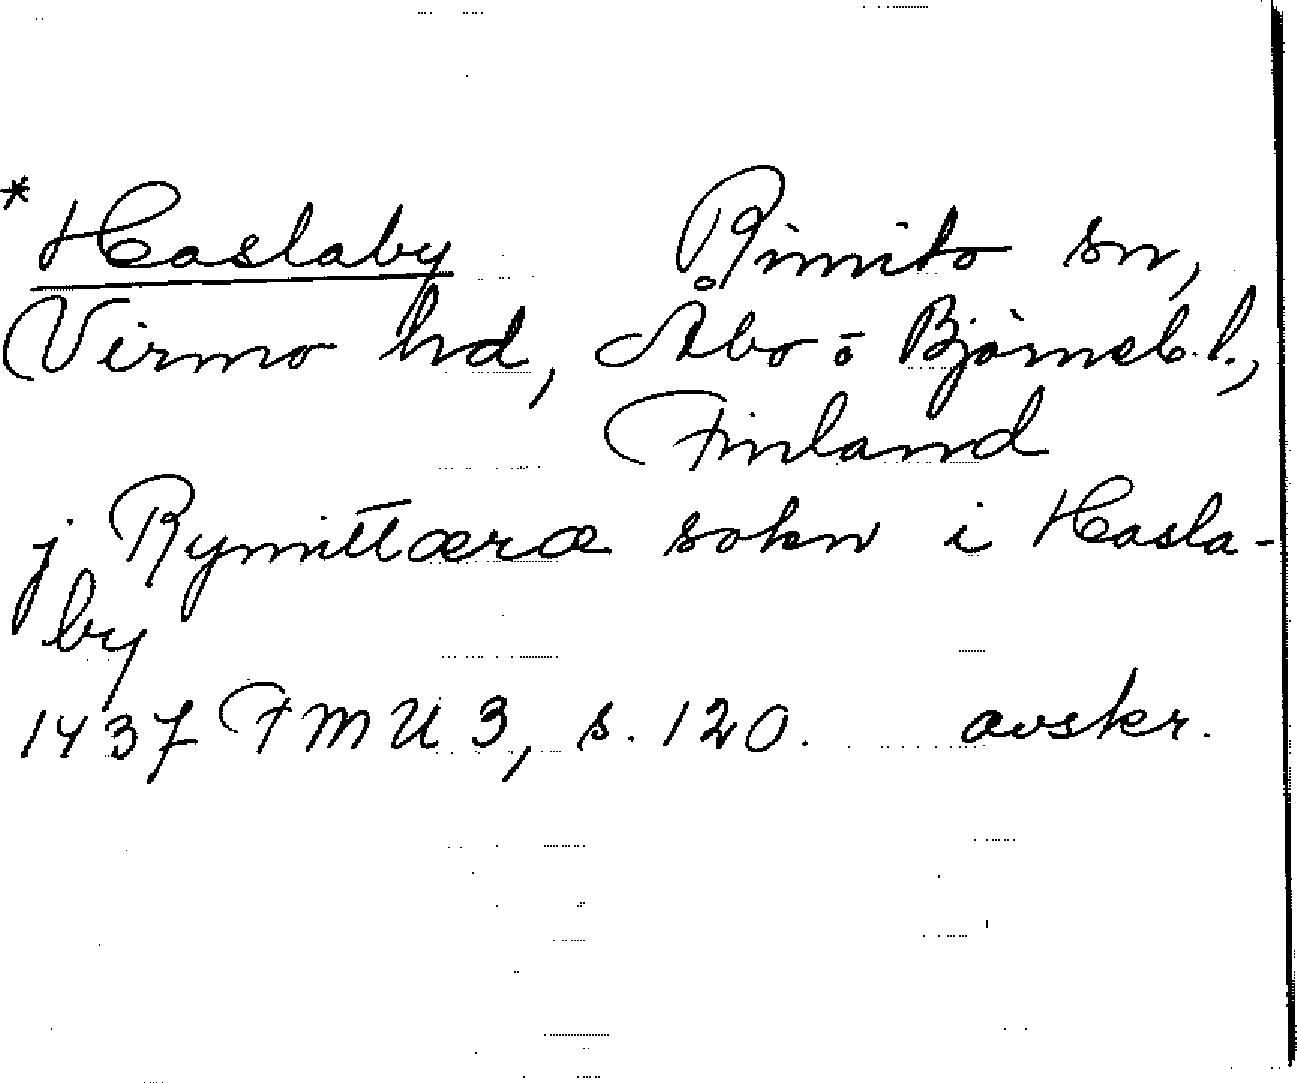 * Haslaby Rimito sn,
Virmo hd, Åbo o Björneb. l.,
Finland
j Rymittæræ sokn i Hasla-
by
1437 FMU 3, s. 120. avskr.